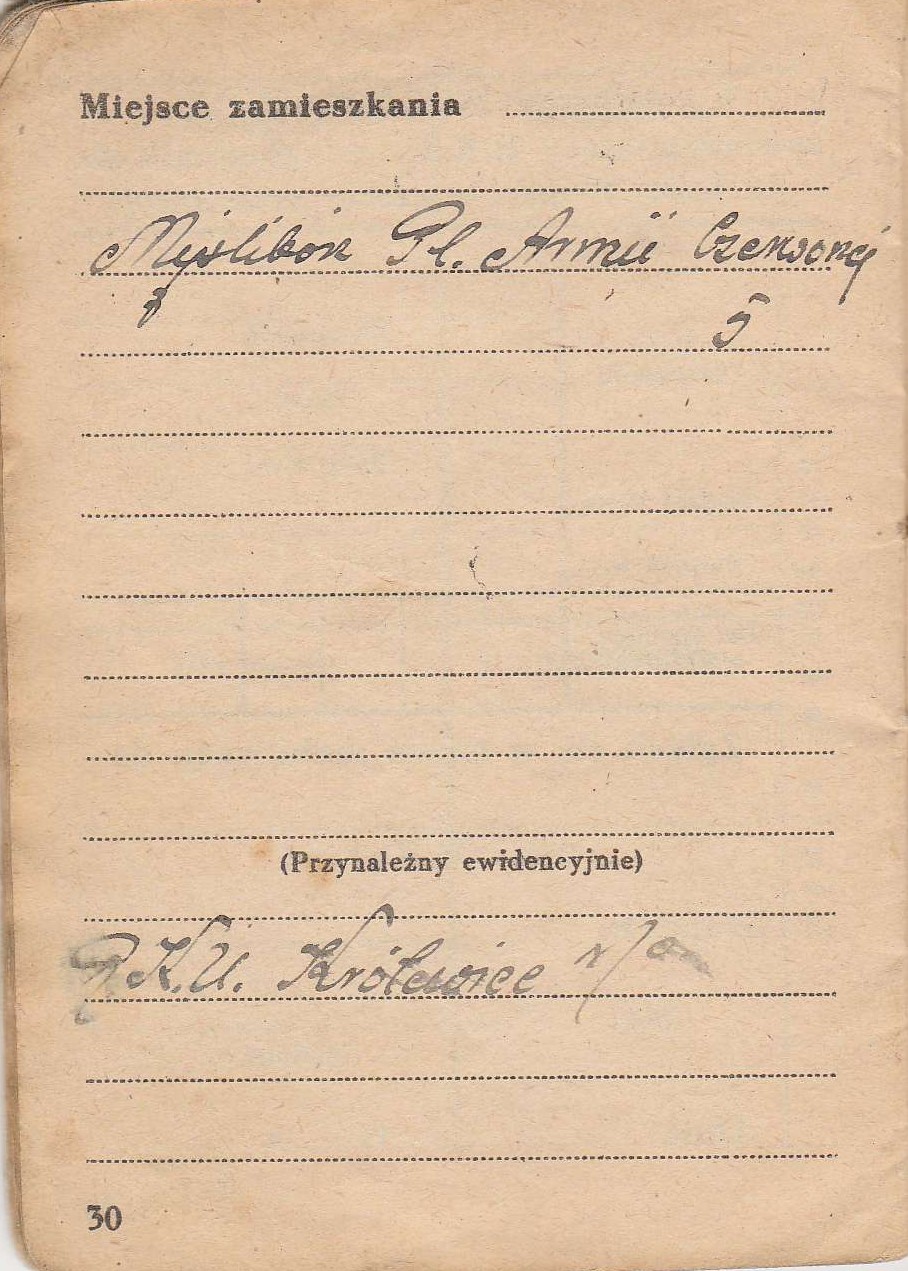 Miejsce zamieszkania
Myślibórz Pl. Armii Czerwonej
5
(Przynależny ewidencyjnie)
R.K.U. Królewiec n/o
30